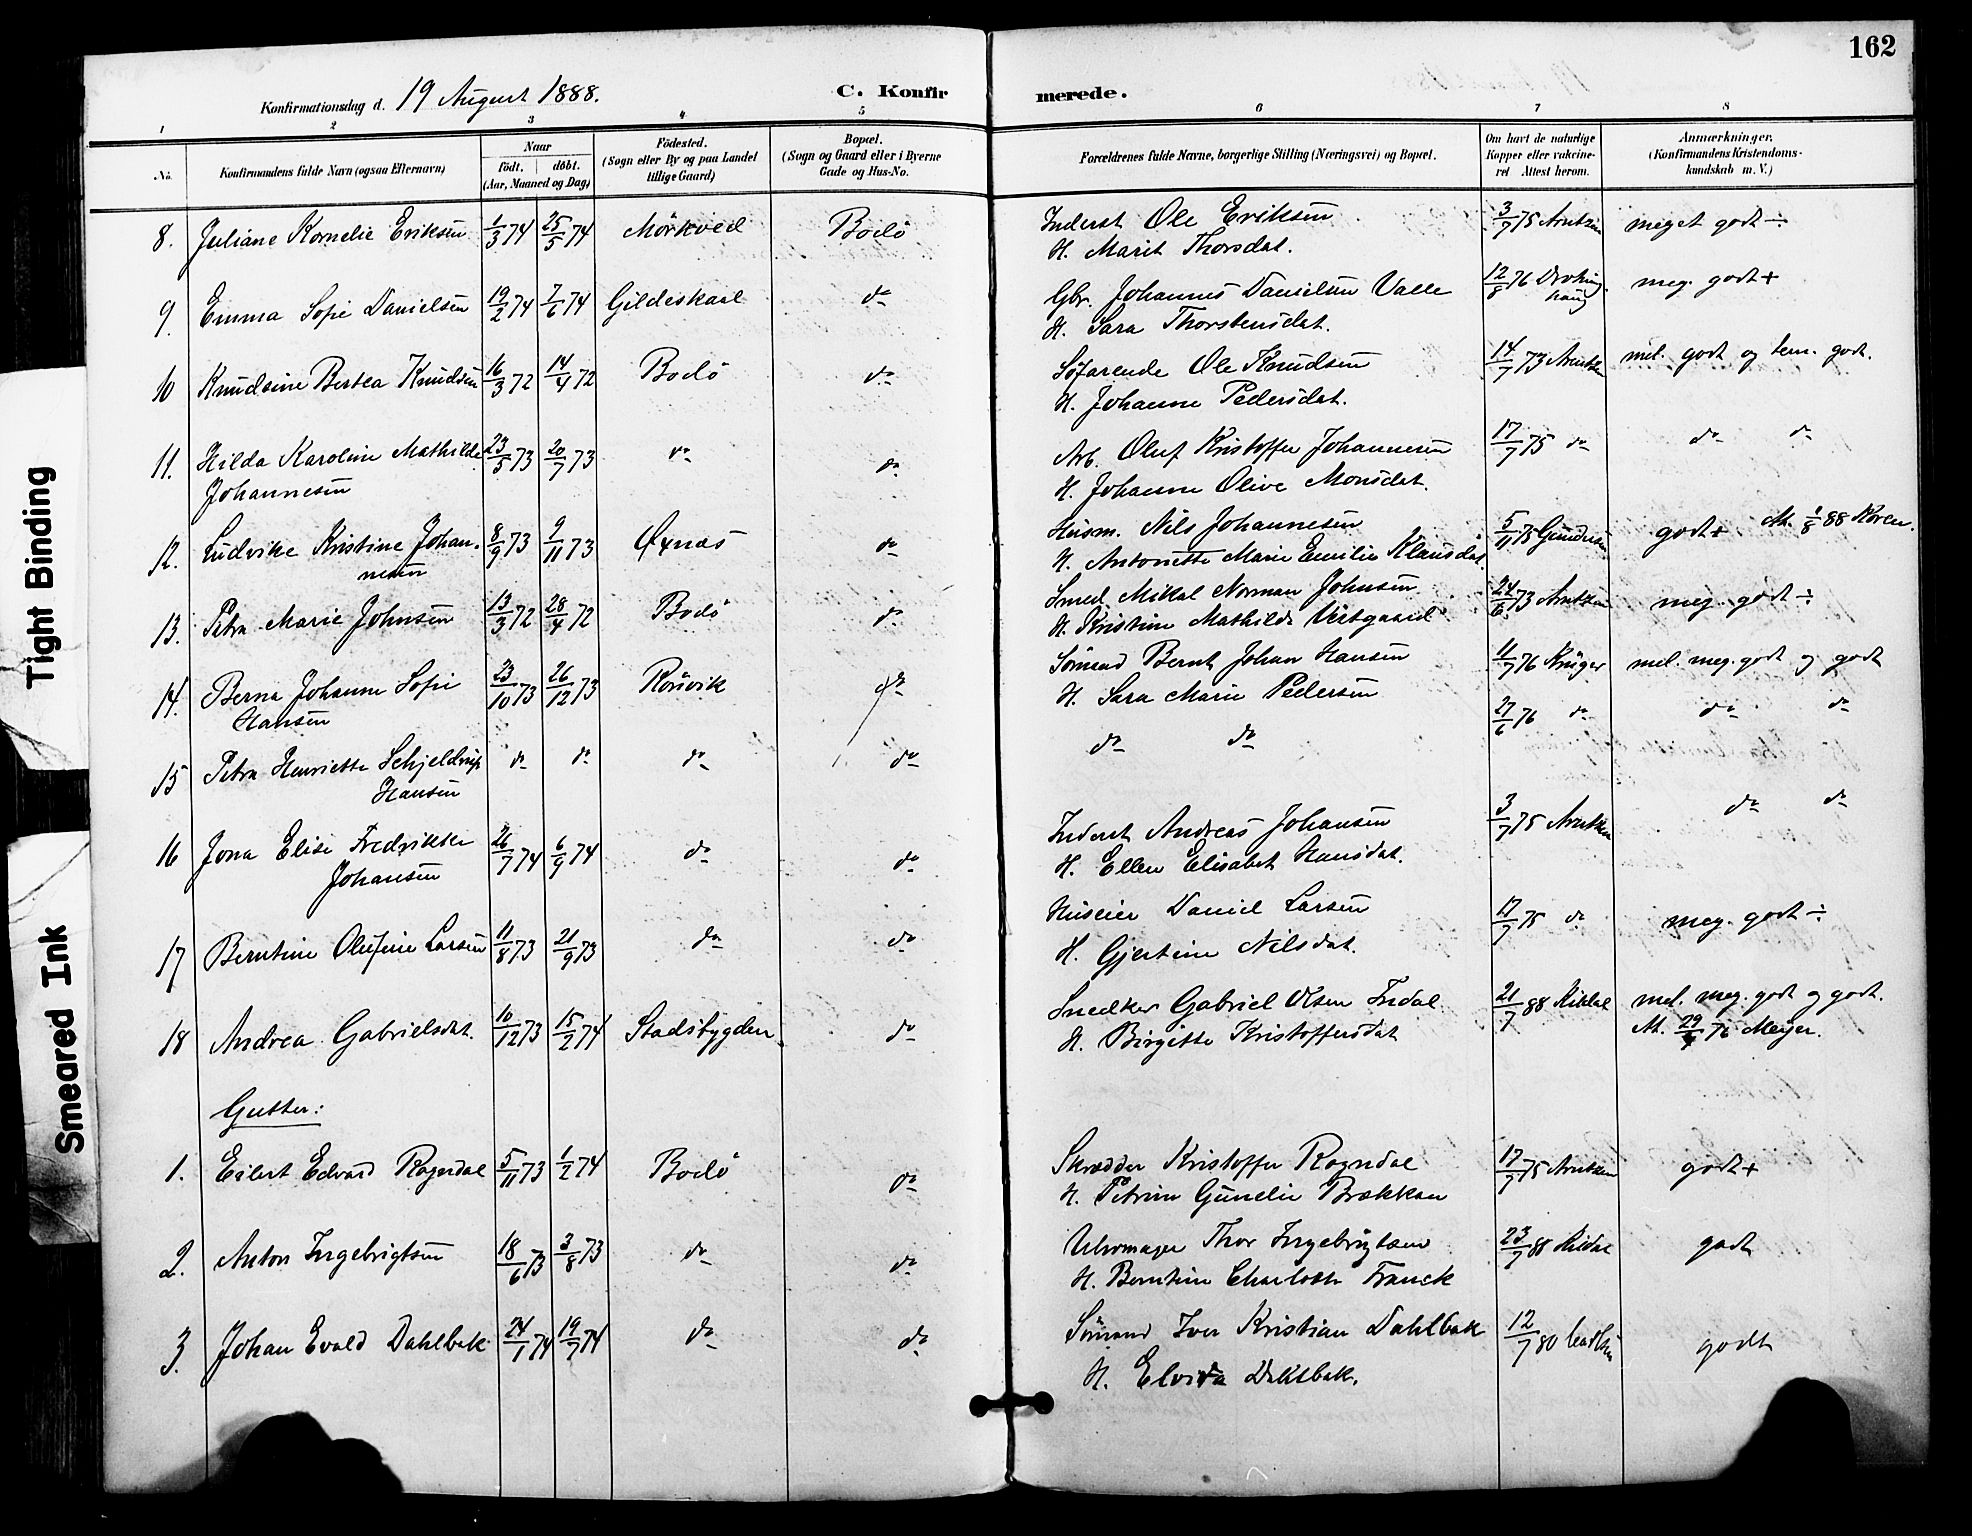 162
Konfirmationsdag d. 19 August 1888.
C. Konfirmerede.
1 2 3 4 5 6 7 8
No. Konfirmandens fulde Navn (ogsaa Efternavn)
Naar født, døbt. (Aar, Maaned og Dag)
Fødested. (Sogn eller By og paa Landet tillige Gaard)
Bopæl. (Sogn og Gaard eller i Byerne Gade og Hus-No.
Forældrenes fulde Navne, borgerlige Stilling (Næringsvei) og Bopæl.
Om havt de naturlige Kopper eller vakcineret Attest herom.
Anmærkninger. (Konfirmandens Kristendomskundskab m. V.)
8. Juliane Kornelie Eriksen 1/3 74 25/5 74 Mörkved Bodö Inderst Ole Eriksen 3/7 75 Arntzen meget godt ÷
H. Marit Thorsdat.
9. Emma Sofie Danielsen 19/2 74 7/6 74 Gildeskaal do Gbr. Johannes Danielsen Valle 12/8 76 meg. godt +
H. Sara Thorstensdat.
10 Knudsine Bertea Knudsen 16/3 72 14/4 72 Bodö do Söfarende Ole Knudsen 14/7 73 Arntzen mel. godt og tem. godt.
H. Johanne Pedersdat.
11. Hilda Karoline Mathilde 23/5 73 20/7 73 do do Arb. Oluf Kristoffer Johannesen 17/7 75 do do do
Johannesen H. Johanne Olive Monsdat.
12. Ludvike Kristine Johan- 8/9 73 9/11 73 Öxnæs do Husm. Nils Johannesen 5/11 75 Gundersen godt + At. 1/8 88 Koren.
nesen H. Antonette Marie Emilie Klausdat
13. Petra Marie Johnsen 13/3 72 28/4 72 Bodö do Smed Mikal Norman Johnsen 24/6 73 Arntzen meg. godt ÷
H. Kristine Mathilde Vestgaard
14. Berna Johanne Sofie 23/10 73 26/12 73 Rösvik do Sömand Bernt Johan Hansen 11/7 76 Krüger mel. meg. godt og godt
Hansen H. Sara Marie Pedersen
15 Petra Henriette Schjeldrup do do do do do do 27/6 76 do do do
Hansen
16 Jona Elise Fredrikke 26/7 74 6/9 74 do do Inderst Andreas Johansen 3/7 75 Arntzen do do
Johansen H. Ellen Elisabet Hansdat.
17 Berntine Olufine Larsen 11/8 73 21/9 73 do do Huseier Daniel Larsen 17/7 75 do meg. godt ÷
H. Gjertine Nilsdat.
18 Andrea Gabrielsdat. 10/12 73 15/2 74 Stadsbygden do Snedker Gabriel Olsen Indal 21/7 88 Kildal mel. meg. godt og godt.
H. Birgitte Kristoffersdat At. 29/ 76 Meyer.
Gutter:
1. Eilert Edvard Rogndal 5/11 73 1/2 74 Bodö do Skrædder Kristoffer Rogndal 17/7 75 Arntzen godt +
H. Petrine Gunelie Brækkan
2. Anton Ingebrigtsen 18/6 73 3/8 73 do do Uhrmager Thor Ingebrigtsen 23/7 88 Kildal godt
H. Berntine Charlotte Franck
3. Johan Evald Dahlbak 24/1 74 19/7 74 do do Sömand Iver Kristian Dahlbak 12/7 80 godt
H. Elvida Dahlbak.
Tight Binding
Smeared Ink